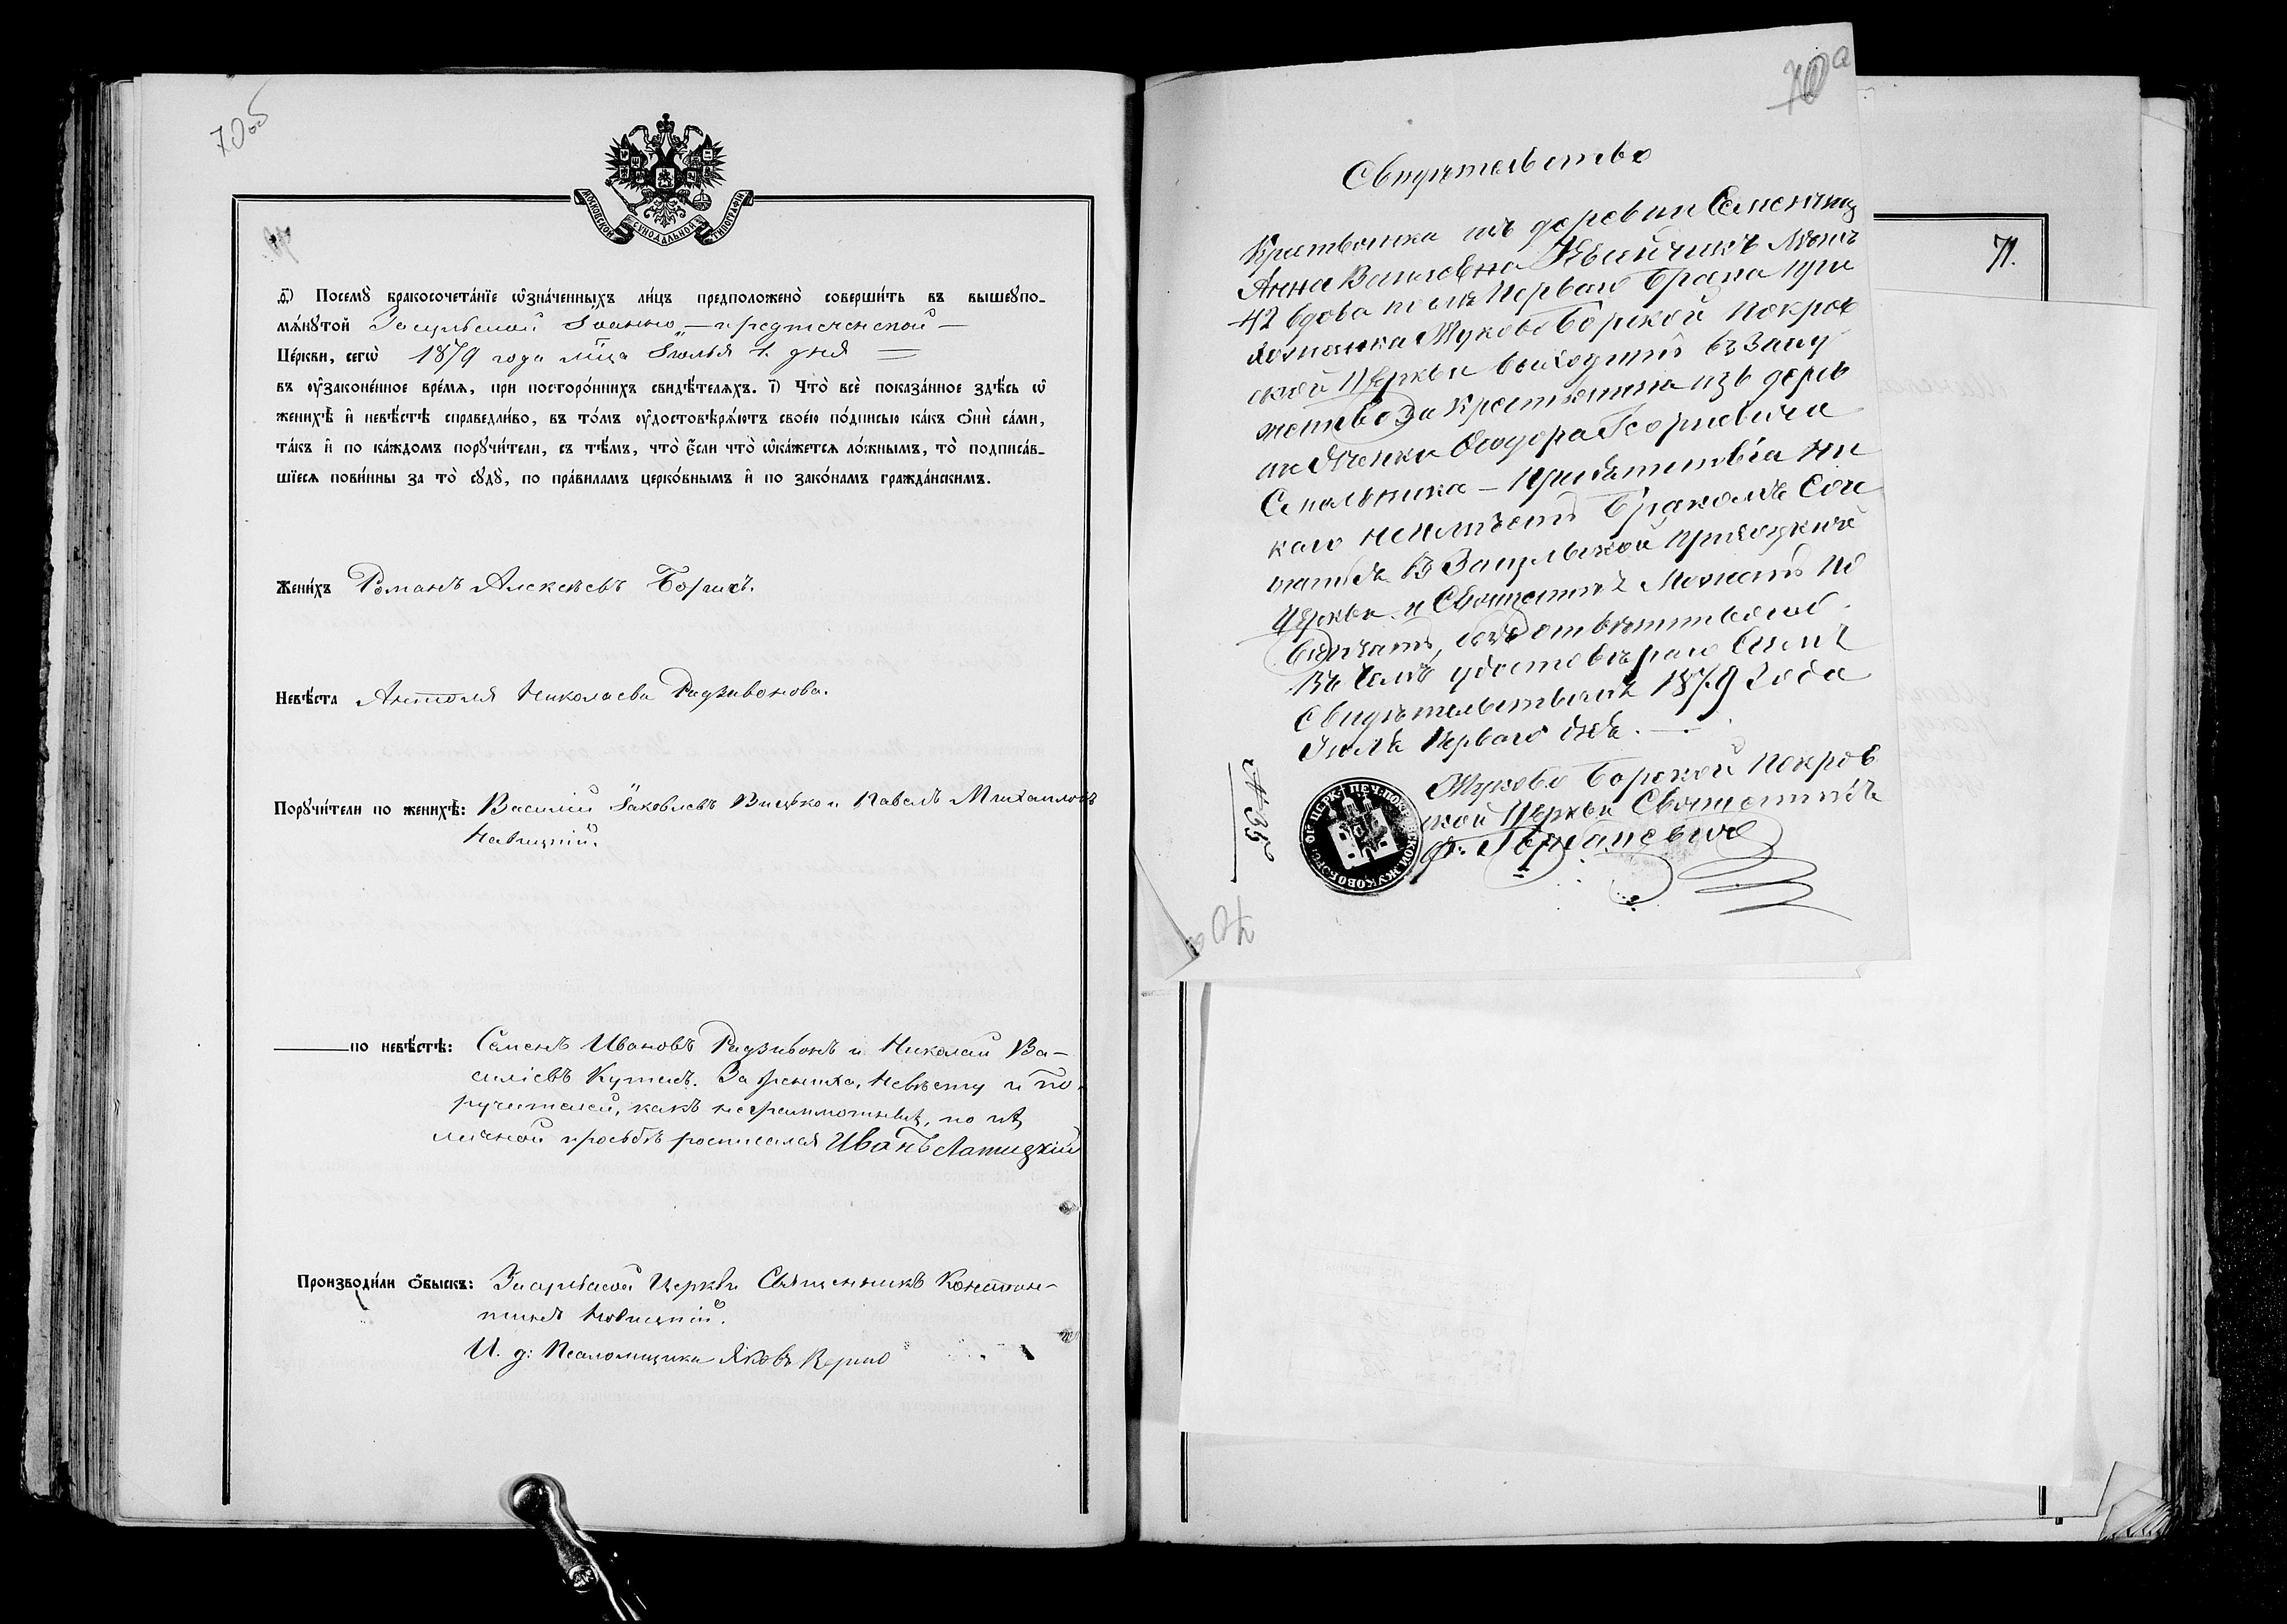 70об
МОСКОВСКОЙ СѴНОДАЛЬНОЙ ТИПОГРАФІИ
Посемꙋ̀ бракосочета́нїе ѡ҆зна́ченныхъ ли́цъ предположено̀ соверши́ть въ вышеꙋпо-
мѧ́нꙋтой Засульской Іоанно-предтеченской —
Це́ркви, сегѡ̀ 1879 года мца Іюлья 1. дня =
въ ᲂу҆зако́не́нное вре́мѧ, при посторо́ннихъ свидѣ́телѧхъ. і҃) Что̀ всѐ показа́нное здѣ́сь ѡ҆
женихѣ̀ и҆ невѣ́стѣ справедли́во, въ то́мъ ᲂу҆достовѣрѧ́ютъ свое́ю по́дписью ка́къ ѻ҆нѝ са́ми,
та́къ и҆ по ка́ждомъ порꙋчи́тели, съ тѣ́мъ, что̀ є҆́сли что̀ ѡ҆ка́жетсѧ ло́жнымъ, то̀ подписа́в-
шїесѧ пови́нны за то̀ сꙋдꙋ̀, по пра́виламъ церко́внымъ и҆ по зако́намъ гражда́нскимъ.
Жени́хъ Романъ Алексѣевъ Борисъ.
Невѣ́ста Антоля Николаева Радзивонова.
Порꙋчи́тели по женихѣ̀: Василій Іаковлевъ Вицько и Павелъ Михаиловъ
Навицкій.
по невѣ́стѣ: Семенъ Ивановъ Радзивонъ и Николай Ва-
силіевъ Кутасъ. За жениха, невѣсту и по-
ручителей, какъ неграмотныхъ, по ихъ
личной просьбѣ росписался Иванъ Латицкій
Производи́ли ѻ҆́быскъ: Засульской Церкви Священникъ Констан-
тинъ Новицкій.
И. д: Псаломщика Яковъ
70а
Свидѣтельство
Крестьянка изъ деревни Семенчицъ
Анна Василевна лѣтъ
42 вдова послѣ перваго брака при
хожанка Жуково Борской Покров
ской Церкви выходитъ въ Заму
жество за крестьянина изъ дерев
Ѳеодора Георгіевича
Сенольника — Препятствія ни
какого неимѣетъ бракомъ соче
таться. В Засульской приходской
Церкви и Священникъ Можетъ по
вѣнчать, безъ ответственности.
Въ чемъ удостовѣряю симъ
Свидѣтельствомъ 1879 года
Іюля перваго дня. —
Жуково Борской Покров
ской Церкви Священникъ
№ 35
70а
71.